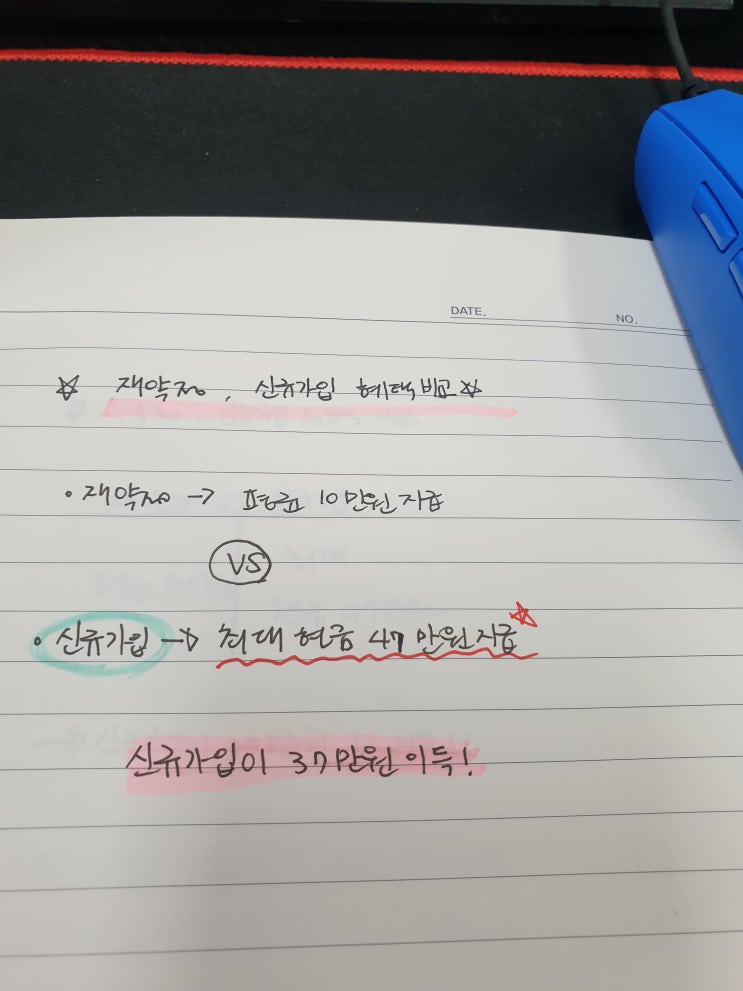 DATE.
NO.
☆ 재약정, 신규가입 혜택비교 ☆
• 재약정 → 평균 10만원 지급
VS
• 신규가입 → 최대 현금 47만원 지급 ☆
신규가입이 37만원 이득!